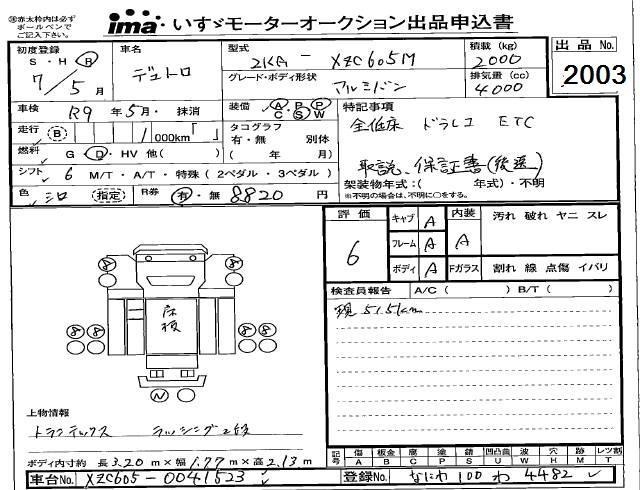 ※赤太枠内は必ず
ボールペンで
ご記入下さい。
ima いすゞモーターオークション出品申込書
初度登録
S・H・R
7/5月
車名
デュトロ
型式
2KA - XZC605M
グレード・ボディ形状
アルミバン
積載(kg)
2000
排気量(cc)
4000
出品 No.
2003
車検 R9 年 5月・抹消
装備 A P P
C S W
特記事項
全低床 ドラレコ ETC
取説、保証書(後送)
走行 B 000km「 」
タコグラフ
有・無 別体
( 年 月交換)
燃料 G・D・HV 他( )
シフト 6 M/T・A/T・特殊(2ペダル・3ペダル)
架装物年式:( 年式)・不明
※不明の場合は、不明に○をする。
色 シロ (指定) R券 有・無 8820 円
評価
6
キャブ A
フレーム A
ボディ A
内装
A
汚れ 破れ ヤニ スレ
Fガラス 割れ 線 点傷 イバリ
検査員報告 A/C( ) B/T( )
現 51.5km
8 8
床横
8 8 8 8
N
上物情報
トラテックス ラッシング2段
ボディ内寸約 長 3.20 m×幅 1.77 m×高 2.13 m
記号 傷 A 板金 B 腐 C 塗 P 錆 S 凹凸曲 U 波 W 穴 H 跡 M レツ割 T
車台No. XZC605-0041523
登録No. なにわ 100 わ 4482